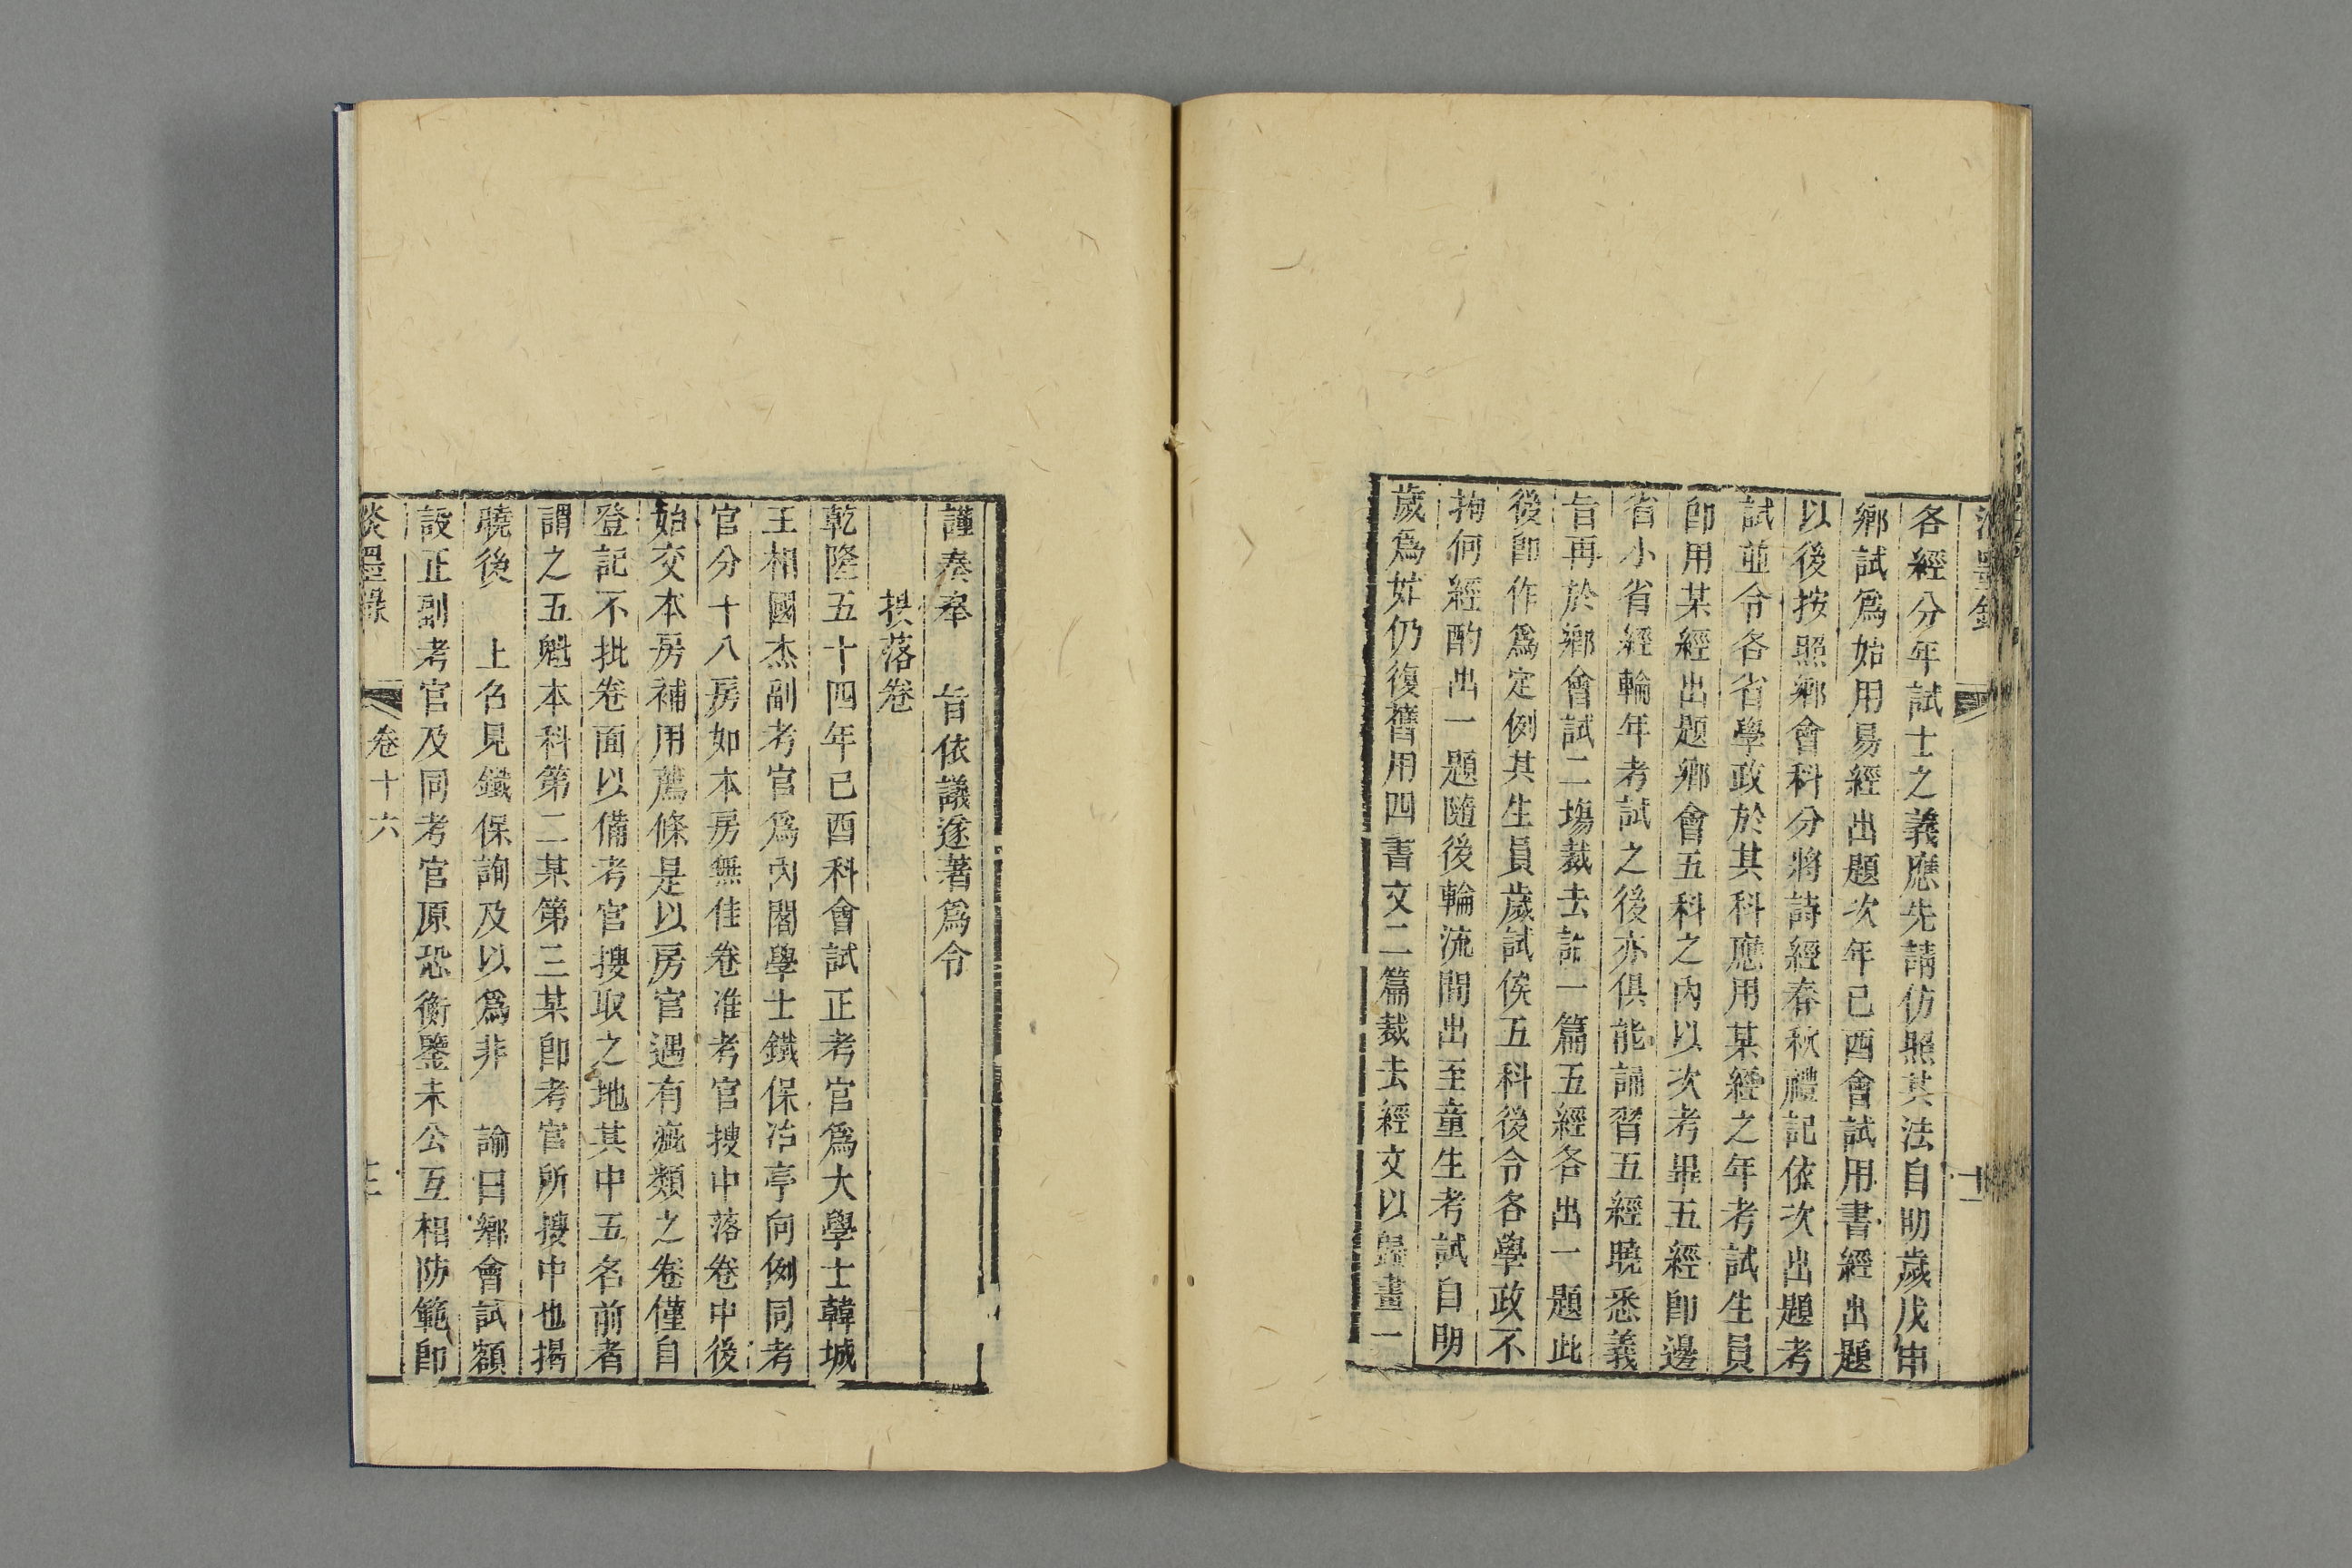 各經分年試士之義應先請仿照其法自明歲戊申
鄉試爲始用易經出題次年已酉會試用書經出題
以後按照鄉會科分將詩經春秋禮記依次出題考
試並令各省學政於其科應用某經之年考試生員
卽用某經出題鄉會五科之內以次考畢五經卽邊
省小省經輪年考試之後亦俱能誦習五經曉悉義
旨再於鄉會試二塲裁去論一篇五經各出一題此
後卽作爲定例其生員歲試俟五科後令各學政不
拘何經酌出一題隨後輪流間出至童生考試自明
歲爲始仍復舊用四書文二篇裁去經文以歸畫一
謹奏奉 旨依議遂著爲令
搜落卷
乾隆五十四年已酉科會試正考官爲大學士韓城
王相國杰副考官爲內閣學士鐵保冶亭向例同考
官分十八房如本房無佳卷准考官搜中落卷中後
始交本房補用薦條是以房官遇有疵纇之卷僅自
登記不批卷面以備考官搜取之地其中五名前者
謂之五魁本科第二某第三某卽考官所搜中也揭
曉後 上召見鐵保詢及以爲非 諭曰鄉會試額
設正副考官及同考官原恐衡鑒未公互相防範卽
淡墨錄 卷十六